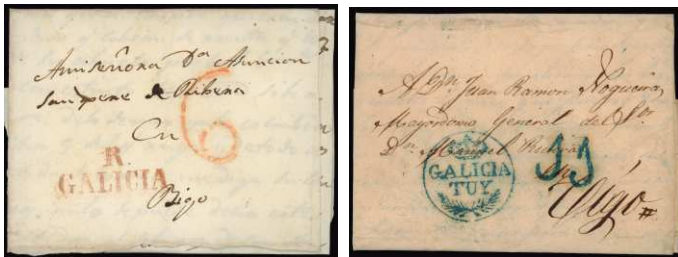 A mi señora Dª Asuncion
Sanpere de Ribera
6
En
R.
GALICIA
Bigo
A Dn Juan Ramon Nogueira,
Mayordomo General del Sor
Dn Manuel Ribera
GALICIA
TUY
11
Vigo